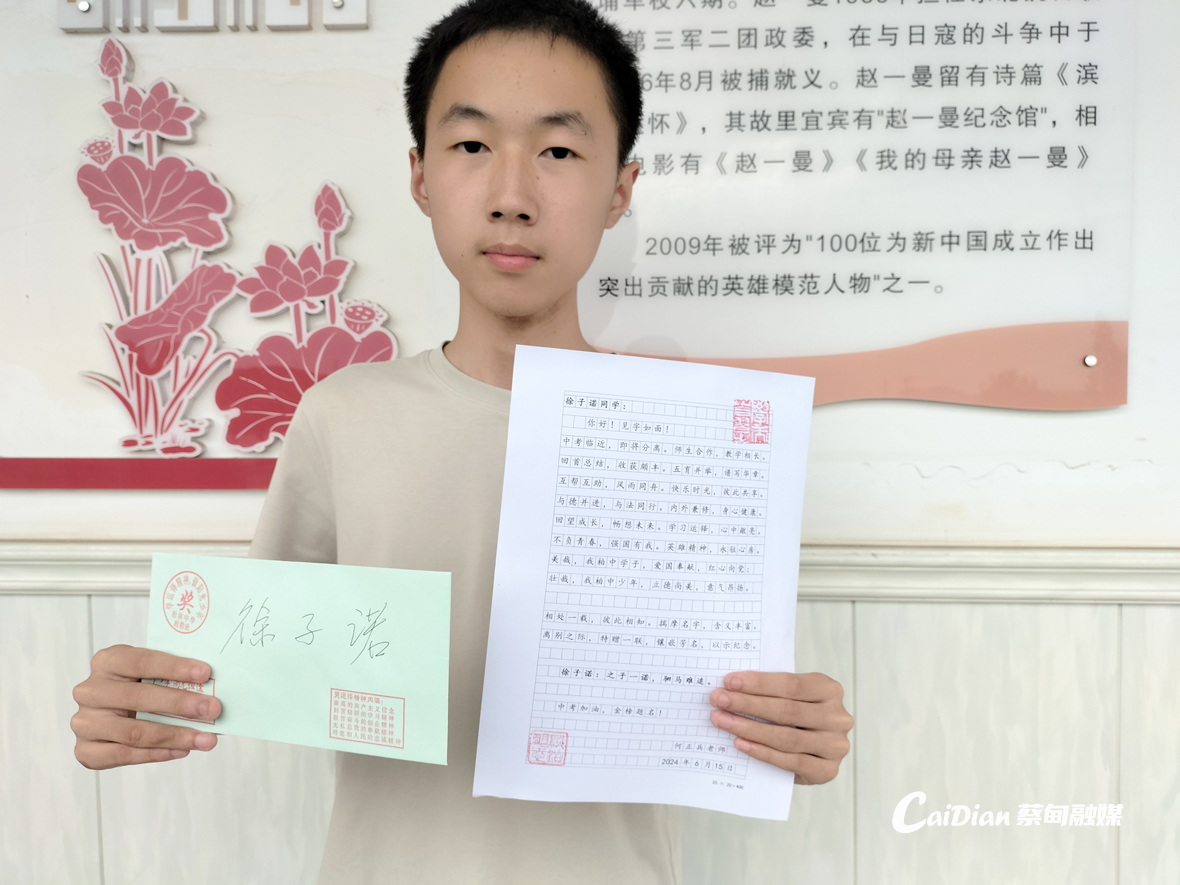 第三军二团政委，在与日寇的斗争中于
6年8月被捕就义。赵一曼留有诗篇《滨
怀》，其故里宜宾有"赵一曼纪念馆"，相
电影有《赵一曼》《我的母亲赵一曼》
2009年被评为"100位为新中国成立作出
突出贡献的英雄模范人物"之一。
徐子诺同学：
你好！见字如面！
中考临近，即将分离。师生合作，教学相长。
回首总结，收获颇丰。五育并举，谱写华章。
互帮互助，风雨同舟。快乐时光，彼此共享。
与德并进，与法同行。内外兼修，身心健康。
回望成长，畅想未来。学习运锋，心中敞亮。
不负青春，强国有我。英雄精神，永驻心房。
美哉，我柏中学子，爱国奉献，红心向党；
壮哉，我柏中少年，立德尚美，意气昂扬。
相处一载，彼此相知。揣摩名字，含义丰富。
离别之际，特赠一联，镶嵌芳名，以示纪念。
徐子诺：之子一诺，驷马难追。
中考加油，金榜题名！
何正兵老师
2024年6月15日
奖
徐子诺
CaiDian 蔡甸融媒